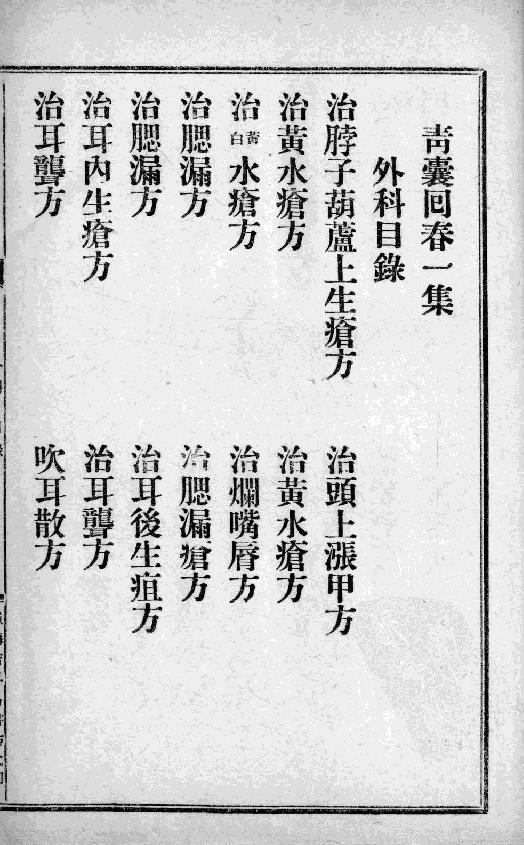 靑囊回春一集
外科目錄
治脖子葫蘆上生瘡方
治頭上漲甲方
治黃水瘡方
治黃水瘡方
治黃白水瘡方
治爛嘴脣方
治腮漏方
治腮漏瘡方
治腮漏方
治耳後生疽方
治耳內生瘡方
治耳聾方
治耳聾方
吹耳散方